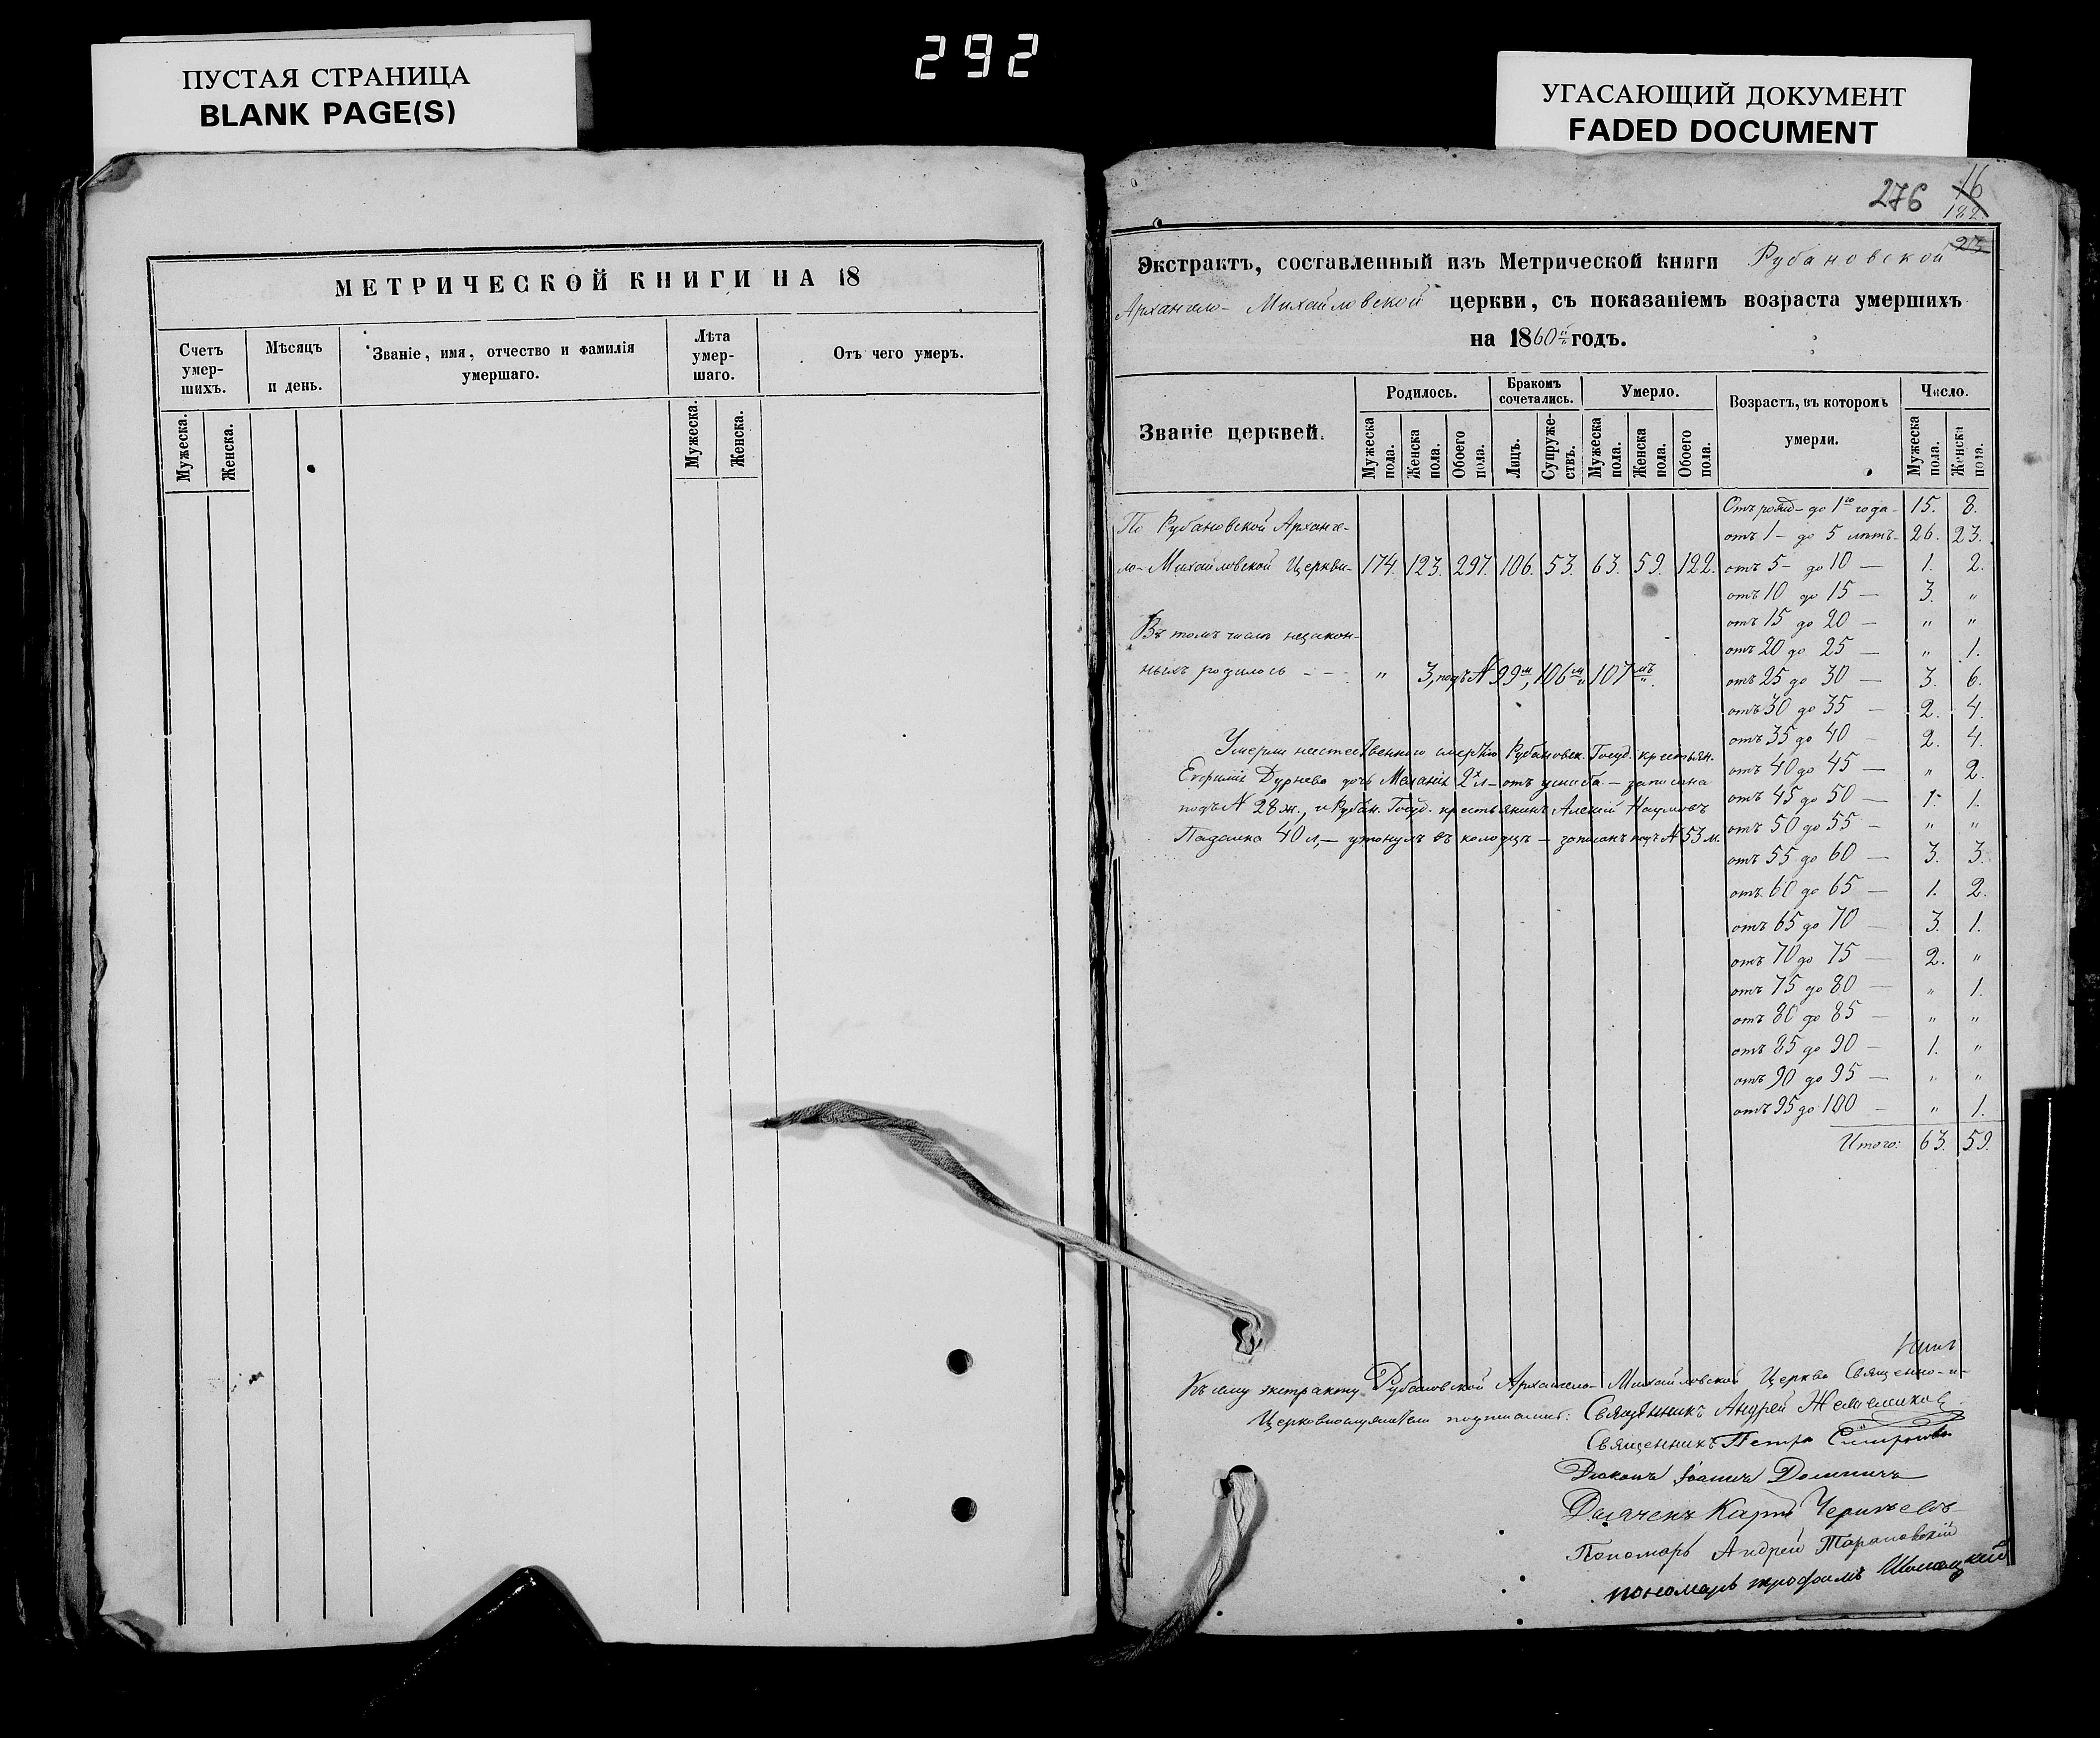 292
ПУСТАЯ СТРАНИЦА
BLANK PAGE(S)
УГАСАЮЩИЙ ДОКУМЕНТ
FADED DOCUMENT
МЕТРИЧЕСКОЙ КНИГИ НА 18
Счетъ умер-шихъ.
Мужеска.
Женска.
Мѣсяцъ и день.
Званіе, имя, отчество и фамилія умершаго.
Лѣта умер-шаго.
Мужеска.
Женска.
Отъ чего умеръ.
276 16
122
23
Экстрактъ, составленный изъ Метрической книги Рубановской
Архангело-Михайловской церкви, съ показаніемъ возраста умершихъ
на 1860й годъ.
Званіе церквей.
Родилось.
Мужеска пола.
Женска пола.
Обоего пола.
Бракомъ сочетались.
Лицъ.
Супруже-ствъ.
Умерло.
Мужеска пола.
Женска пола.
Обоего пола.
Возрастъ, въ которомъ умерли.
Число.
Мужеска пола.
Женска пола.
По Рубановской Арханге-
ло-Михайловской Церкви- 174. 123. 297. 106. 53. 63. 59. 122.
Въ томъ числѣ незакон-
ныхъ родилось - - - " 3, подъ № 99м, 106м и 107мъ.
Умерли неестественною смертію Рубановск. Госуд. крестьян.
Дурнева дочь Меланія 2х л - отъ - записана
подъ № 28 ж., и Рубан. Госуд. крестьянинъ Алексій Наумовъ
Падалка 40 л, - утонулъ въ колодцѣ - записанъ подъ № 53 м.
Отъ рожд- до 1го года- 15. 8.
отъ 1- до 5 лѣтъ- 26. 23.
отъ 5- до 10 — 1. 2.
отъ 10 до 15 — 3. "
отъ 15 до 20 — " "
отъ 20 до 25 — " 1.
отъ 25 до 30 — 3. 6.
отъ 30 до 35 — 2. 4.
отъ 35 до 40 — 2. 4.
отъ 40 до 45 — " 2.
отъ 45 до 50 — 1. 1.
отъ 50 до 55 — " "
отъ 55 до 60 — 3. 3.
отъ 60 до 65 — 1. 2.
отъ 65 до 70 — 3. 1.
отъ 70 до 75 — 2. "
отъ 75 до 80 — " 1.
отъ 80 до 85 — " "
отъ 85 до 90 — 1. "
отъ 90 до 95 — " "
отъ 95 до 100 — " 1.
Итого: 63. 59.
Къ сему экстракту Рубановской Архангело-Михайловской Церкви Священно-и-
Церковнослужители подписались: Священникъ Андрей
Священникъ Петръ
Діаконъ Іоаннъ
Дьячекъ Карпъ
Пономарь Андрей Тарановскій
пономарь трофимъ